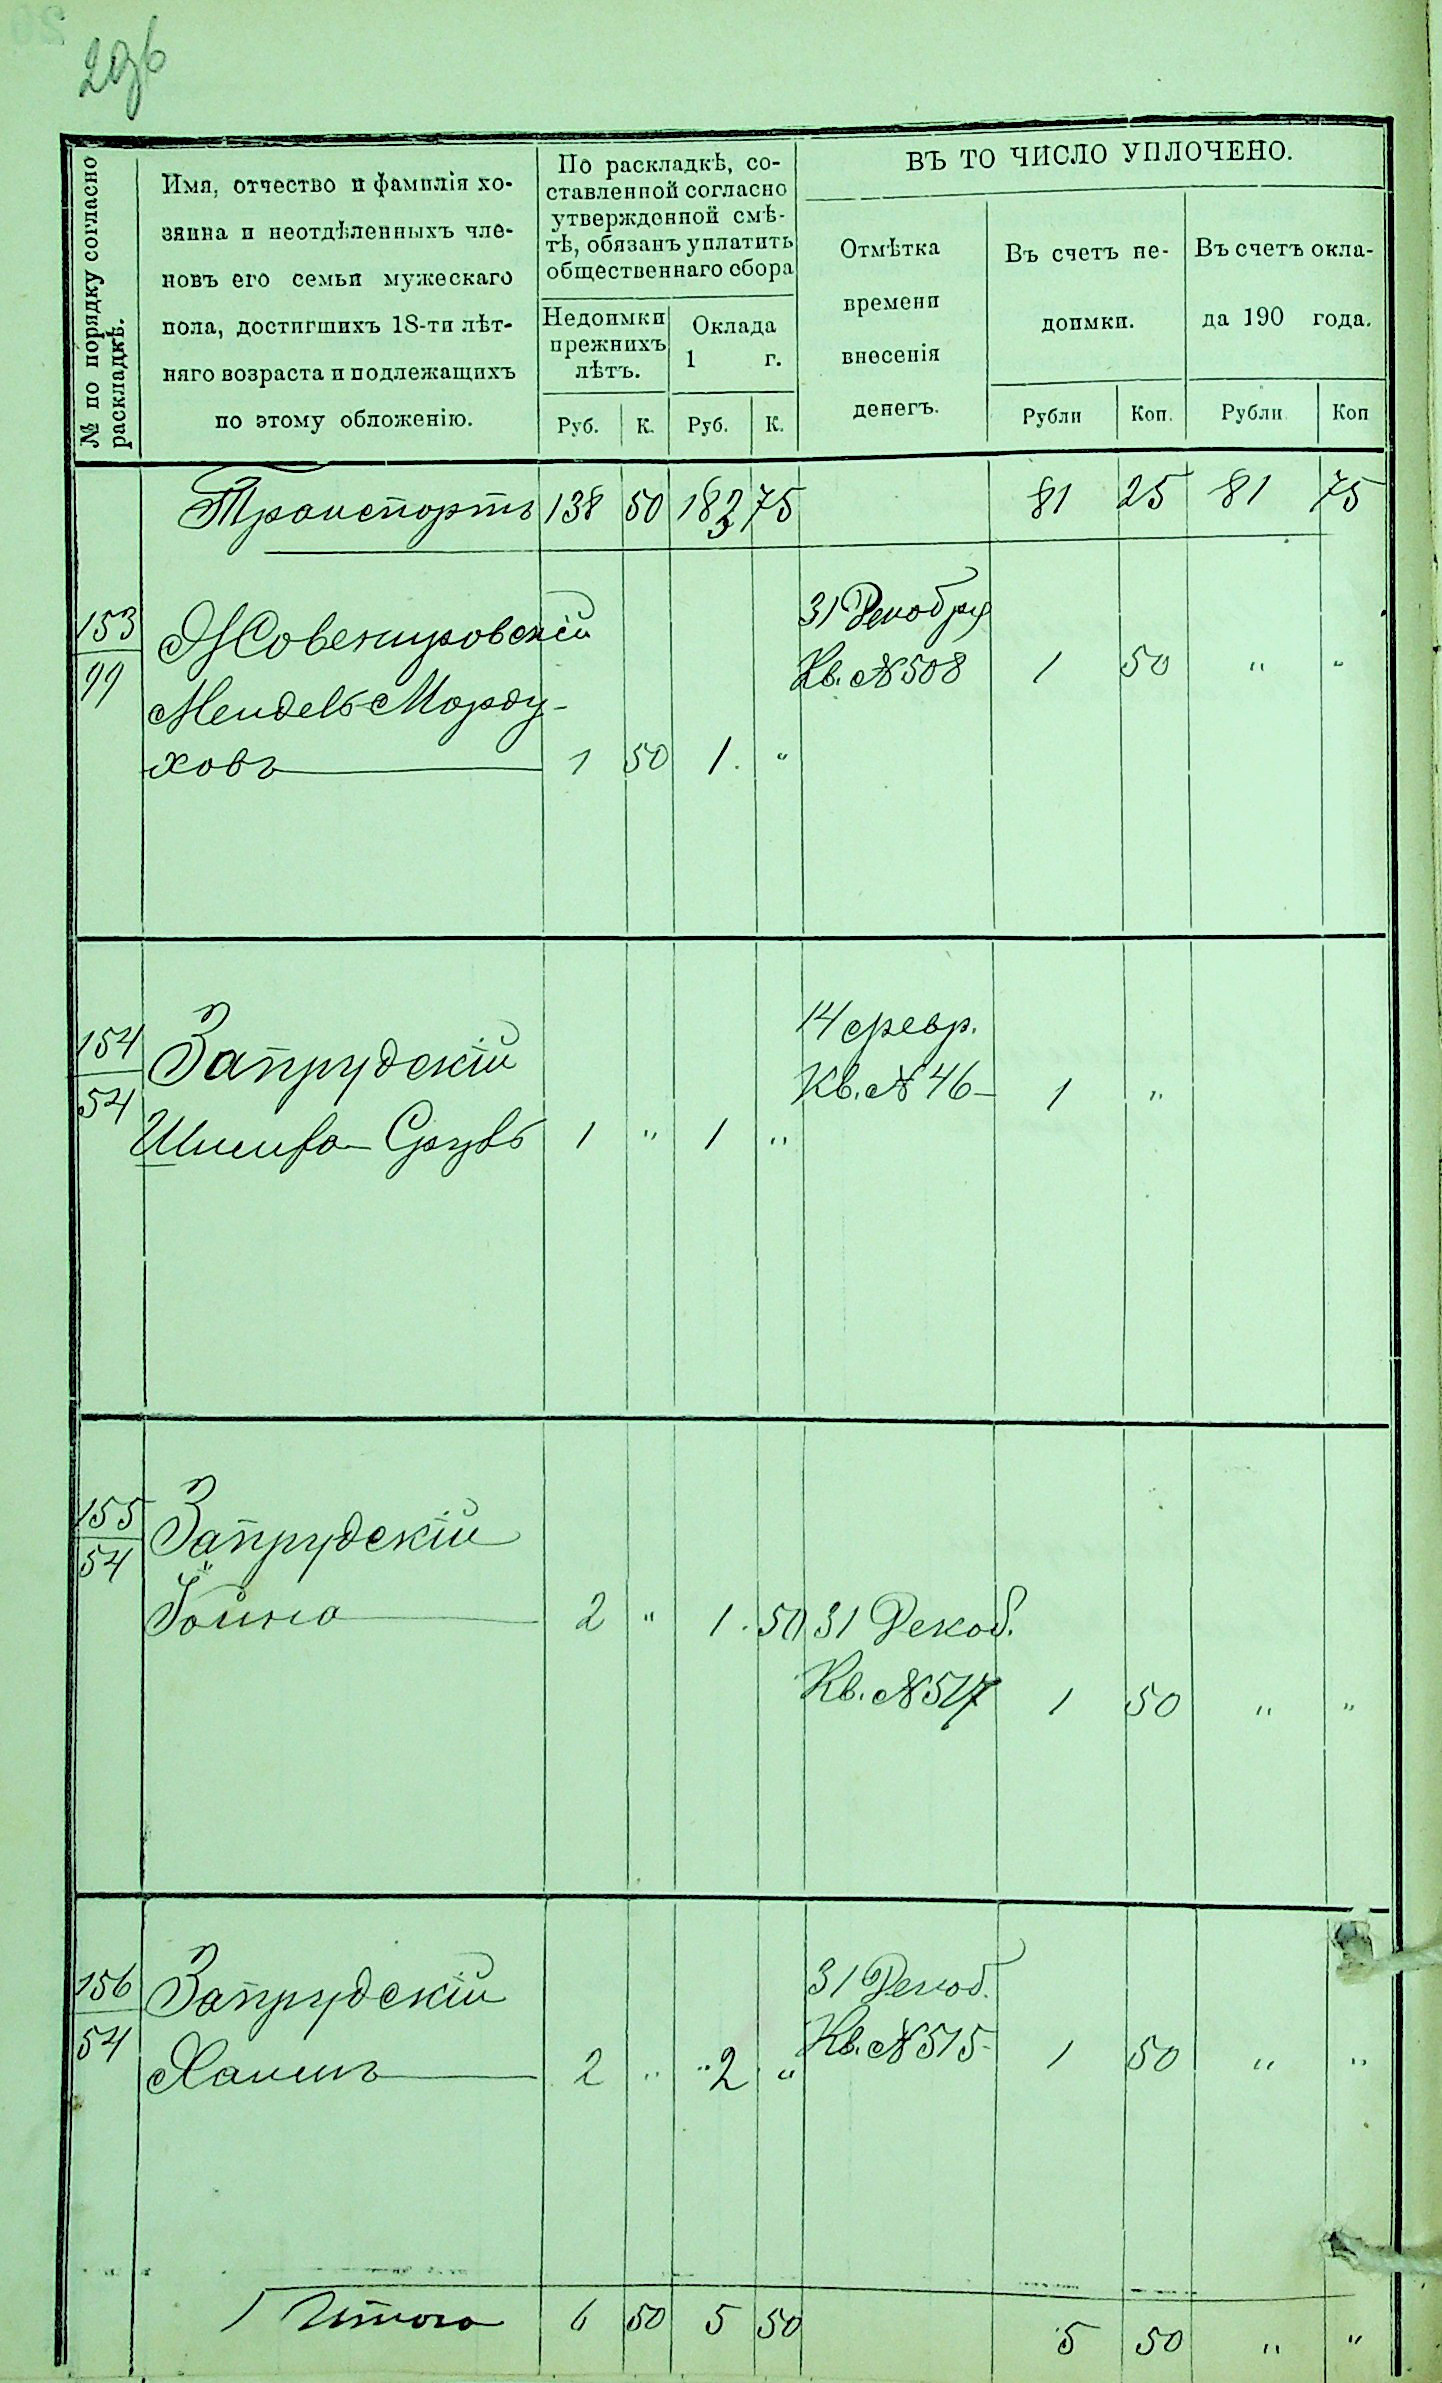 296
№ по порядку согласно
раскладкѣ.
Имя, отчество и фамилія хо-
зяина и неотдѣленныхъ чле-
новъ его семьи мужескаго
пола, достигшихъ 18-ти лѣт-
няго возраста и подлежащихъ
по этому обложенію.
По раскладкѣ, со-
ставленной согласно
утвержденной смѣ-
тѣ, обязанъ уплатить
общественнаго сбора
Недоимки
прежнихъ
лѣтъ.
Оклада
1 г.
ВЪ ТО ЧИСЛО УПЛОЧЕНО.
Отмѣтка
времени
внесенія
денегъ.
Въ счетъ не-
доимки.
Въ счетъ окла-
да 190 года.
Руб. К. Руб. К. Рубли Коп. Рубли Коп
Транспортъ 138 50 183 75 81 25 81 75
153
99
31 Декабря
Кв. № 508 1 50 " "
Мендель Морду-
ховъ 1 50 1. "
154
54
Запрудскій
14 февр.
Кв. № 46 1 "
1 " 1 "
155
54
Запрудскій
Іоина 2 " 1. 50 31 Декаб.
Кв. № 517 1 50 " "
156
54
Запрудскій
31 Декаб.
Кв. № 515 1 50 " "
Хаимъ 2 " " 2 "
Итого 6 50 5 50 5 50 " "